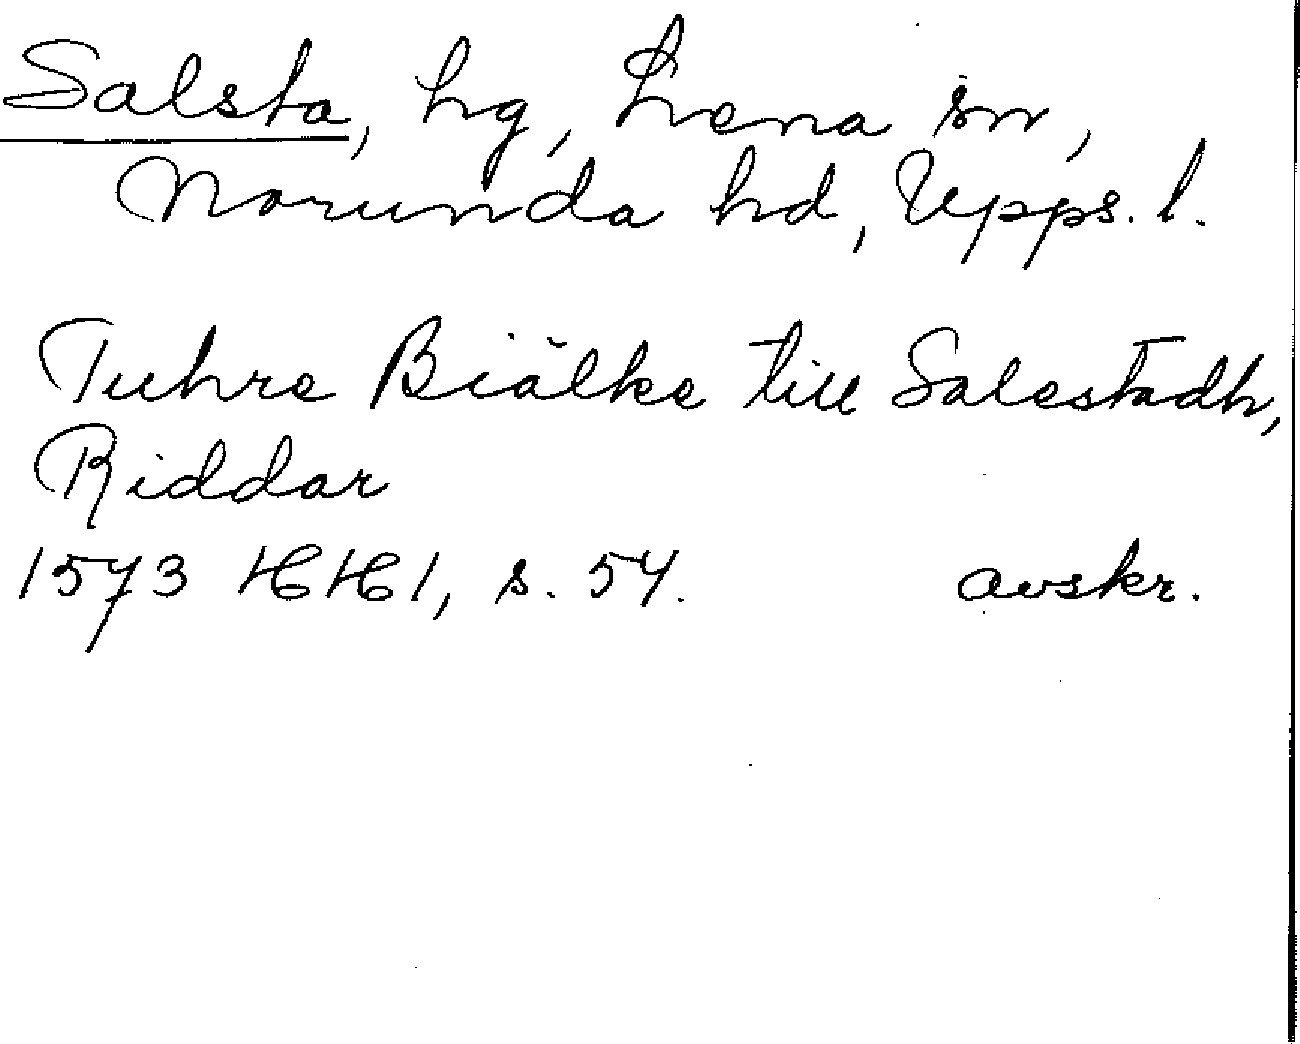 Salsta, hg, Lena sn,
Norunda hd, Upps. l.
Tuhre Biälke till Salestadh,
Riddar
1573 HH 1, s. 54. avskr.